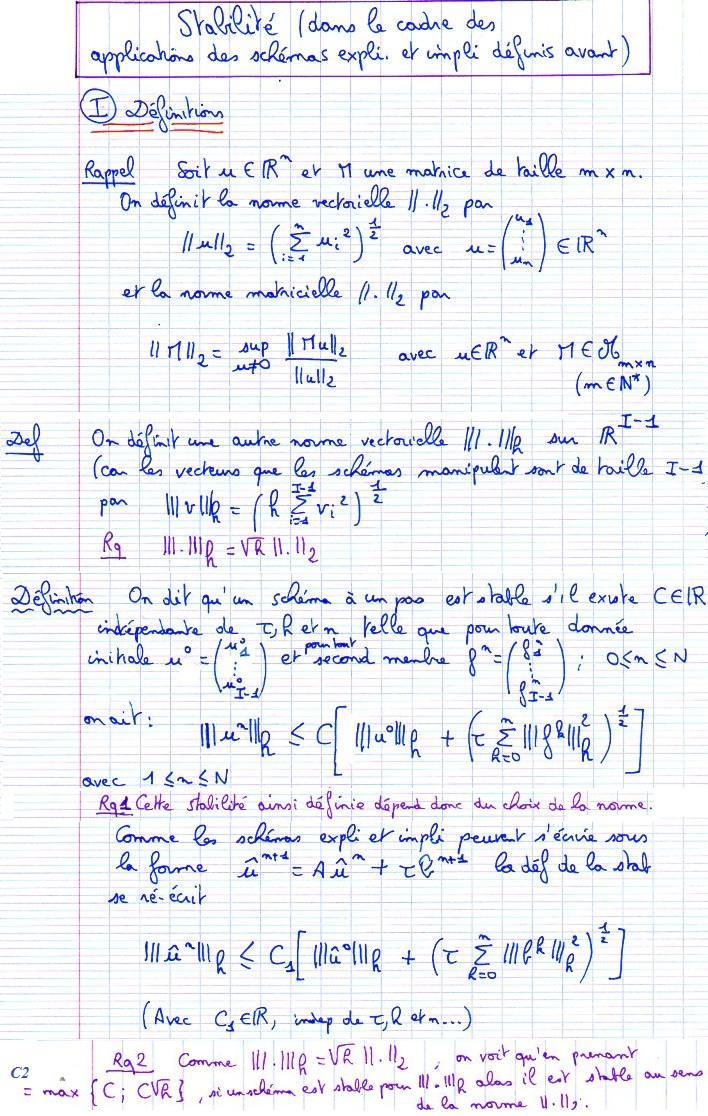 Stabilité (dans le cadre des
applications des schémas expli. et impli définis avant)
I Définitions
Rappel Soit u ∈ ℝⁿ et M une matrice de taille m × n.
On définit la norme vectorielle ‖.‖₂ par
‖u‖₂ = (∑_{i=1}^{n} u_i²)^{1/2} avec u = (u_1 ⋮ u_n) ∈ ℝⁿ
et la norme matricielle ‖.‖₂ par
‖M‖₂ = sup_{u≠0} ‖Mu‖₂ / ‖u‖₂ avec u∈ℝⁿ et M ∈ ℳ_{m×n}
(m ∈ ℕ*)
Def On définit une autre norme vectorielle |||.|||_h sur ℝ^{I-1}
(car les vecteurs que les schémas manipulent sont de taille I-1
par |||v|||_h = (h ∑_{i=1}^{I-1} v_i²)^{1/2}
Rq |||.|||_h = √h ‖.‖₂
Définition On dit qu'un schéma à un pas est stable s'il existe C∈ℝ
indépendante de τ, h et n telle que pour toute donnée
initiale u⁰ = (u⁰_1 ⋮ u⁰_{I-1}) et pour tout second membre fⁿ = (fⁿ_1 ⋮ fⁿ_{I-1}) ; 0≤n≤N
on ait : |||uⁿ|||_h ≤ C[ |||u⁰|||_h + (τ ∑_{k=0}^{n} |||f^k|||_h²)^{1/2} ]
avec 1 ≤ n ≤ N
Rq1 Cette stabilité ainsi définie dépend donc du choix de la norme.
Comme les schémas expli et impli peuvent s'écrie sous
la forme û^{n+1} = A û^n + τ b^{n+1} la déf de la stab
se ré-écrit
|||ûⁿ|||_h ≤ C_1[ |||û⁰|||_h + (τ ∑_{k=0}^{n} |||b^k|||_h²)^{1/2} ]
(Avec C_1 ∈ℝ, indep de τ, h et n...)
Rq2 Comme |||.|||_h = √h ‖.‖₂, on voit qu'en prenant
C2 = max {C ; C√h}, si un schéma est stable pour |||.|||_h alos il est stable au sens
de la norme ‖.‖₂.